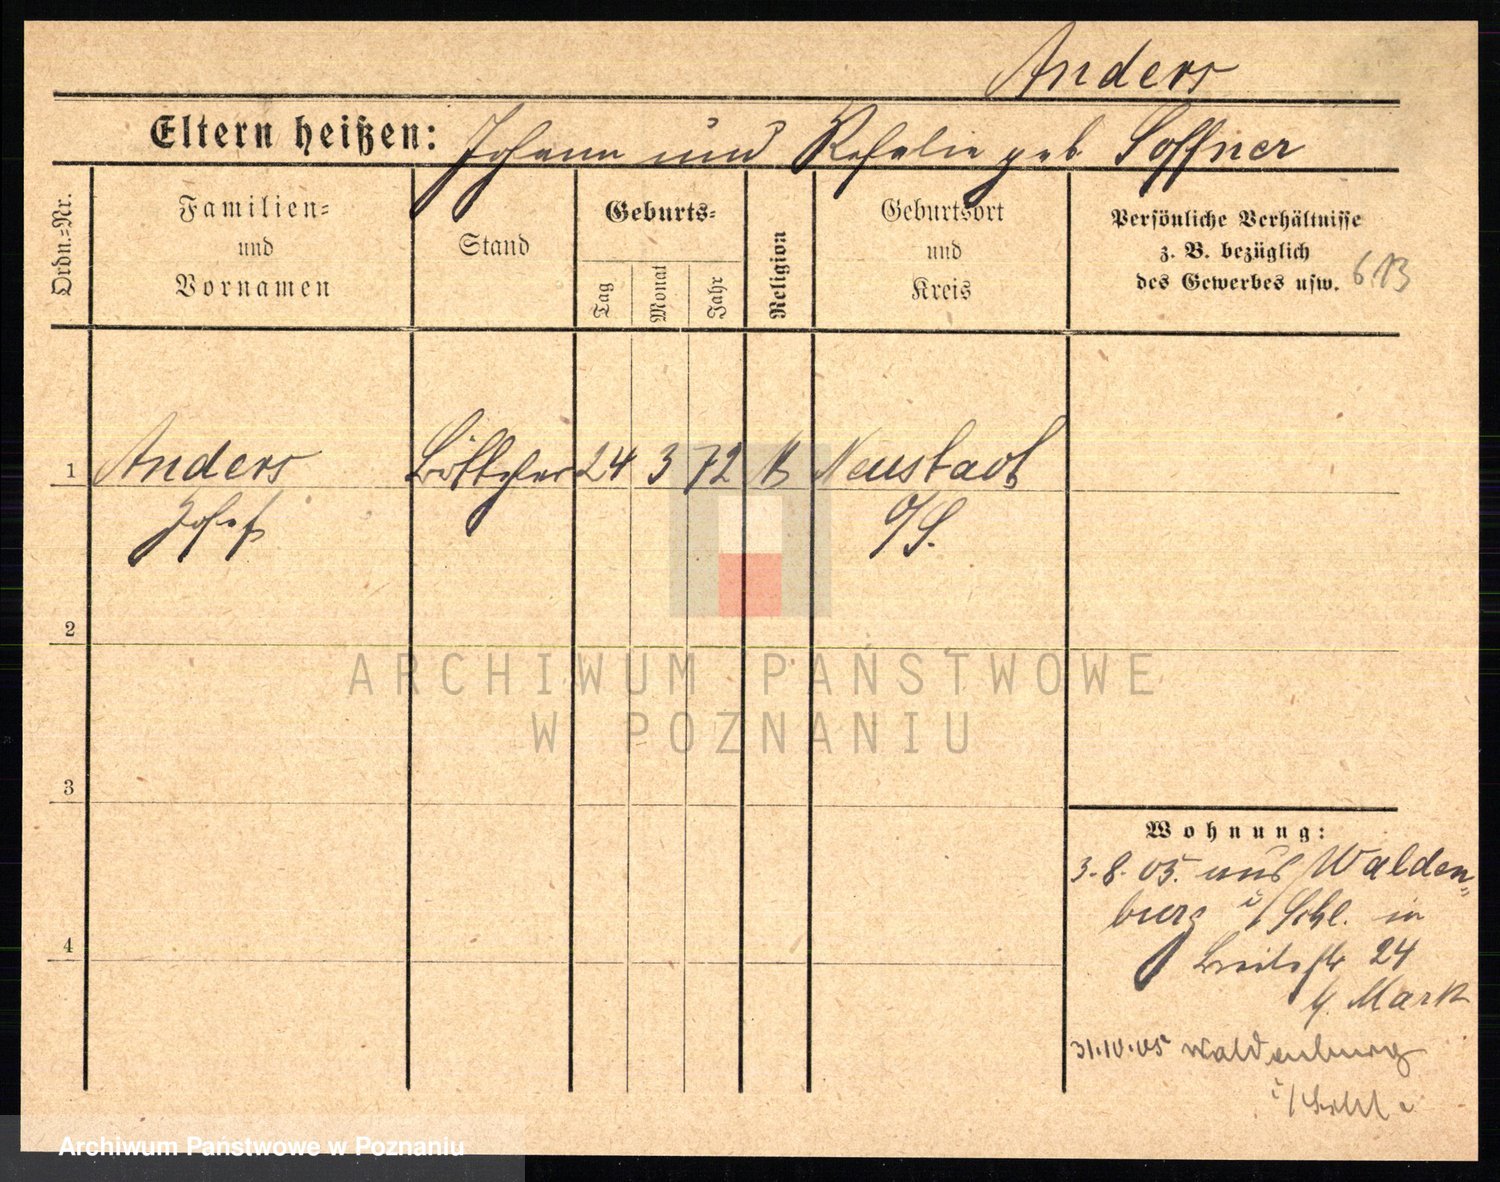 Anders
Eltern heißen: Johann und Rosalie geb Soffner
Ordn.-Nr.
Familien-
und
Vornamen
Stand
Geburts-
Tag
Monat
Jahr
Religion
Geburtsort
und
Kreis
Persönliche Verhältnisse
z. B. bezüglich
des Gewerbes usw.
613
1 Anders Böttcher 24 3 72 K Neustadt
Josef O/S.
2
3
4
Wohnung:
3.8.05. aus Walden-
burg i/Schl. in
Breitestr 24
b. Mark
31.10.05 Waldenburg
i/Schl
ARCHIWUM PAŃSTWOWE
W POZNANIU
Archiwum Państwowe w Poznaniu